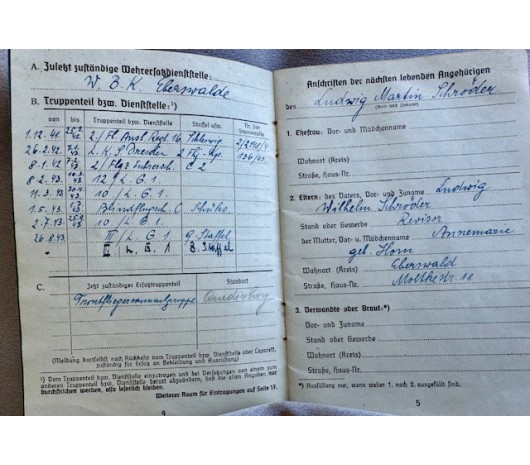 A. Zuletzt zuständige Wehrersatzdienststelle:
W. B. K. Eberswalde
B. Truppenteil bzw. Dienststelle:¹)
von
bis
Truppenteil bzw. Dienststelle
Staffel usw.
1.12.41. 2./Fl. Ausb. Regt. 16 Schleswig
26.2.42. L. K. S. Dresden
8.1.42
8.2.43. 10./L. G. 1
11.3.43 12./L. G. 1.
1.5.43 Blindflugsch. C
2.7.43 10./L. G. 1.
26.8.43 III/L. G. 1 9. Staffel
II/L. G. 1 Staffel
C.
Jetzt zuständiger Ersatztruppenteil
Standort
Frontfliegersammelgruppe Quedlinburg
(Meldung dortselbst nach Rückkehr vom Truppenteil bzw. Dienststelle oder Lazarett,
zuständig für Ersatz an Bekleidung und Ausrüstung)
¹) Vom Truppenteil einzutragen und bei Versetzungen von einem zum
anderen Truppenteil bzw. Dienststelle derart abzuändern, daß die alten Angaben nur
durchstrichen werden, also leserlich bleiben.
Weiterer Raum für Eintragungen auf Seite 17.
4
Anschriften der nächsten lebenden Angehörigen
des Ludwig Martin Schröder
(Vor- und Zuname)
1. Ehefrau: Vor- und Mädchenname
Wohnort (Kreis)
Straße, Haus-Nr.
2. Eltern: des Vaters, Vor- und Zuname Ludwig
Wilhelm Schröder
Stand oder Gewerbe Revisor
der Mutter, Vor- u. Mädchenname Annemarie
geb. Horn
Wohnort (Kreis) Eberswald
Straße, Haus-Nr. Moltkestr. 18
3. Verwandte oder Braut:*)
Vor- und Zuname
Stand oder Gewerbe
Wohnort (Kreis)
Straße, Haus-Nr.
*) Ausfüllung nur, wenn weder 1. noch 2. ausgefüllt sind.
5